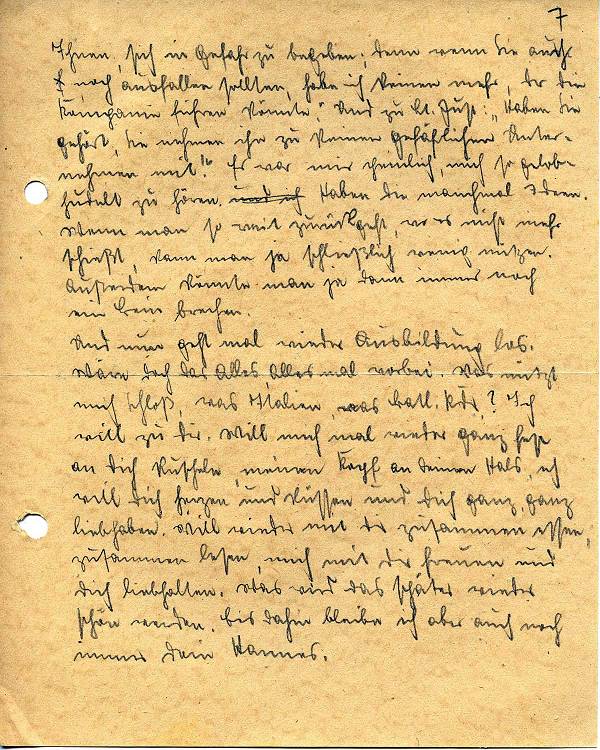 7
Ihnen, sich in Gefahr zu begeben, denn wenn Sie auch
noch ausfallen sollten, habe ich keinen mehr, der die
Kompanie führen könnte." Und zu Lt. Just: "Haben Sie
gehört, Sie nehmen ihn zu keinen gefährlichen Unter-
nehmen mit!" Es war mir peinlich, mich so gelob-
hudelt zu hören. und ich Haben die manchmal Ideen.
Wenn man so weit zurückgeht, wo es nicht mehr
schießt, kann man ja schließlich wenig nützen.
Außerdem könnte man ja dann immer noch
ein Bein brechen.
Und nun geht mal wieder Ausbildung los.
Wäre doch das Alles, Alles mal vorbei. Was nützt
mich Schloß, was Italien, was Batl. Kdr.? Ich
will zu Dir. Will mich mal wieder ganz fest
an Dich kuscheln, meinen Kopf an Deinen Hals, ich
will Dich herzen und küssen und Dich ganz, ganz
liebhaben. Will wieder mit Dir zusammen essen,
zusammen lesen, mich mit Dir freuen und
Dich liebhalten. Was wird das später wieder
schön werden. Bis dahin bleibe ich aber auch noch
immer Dein Hannes.